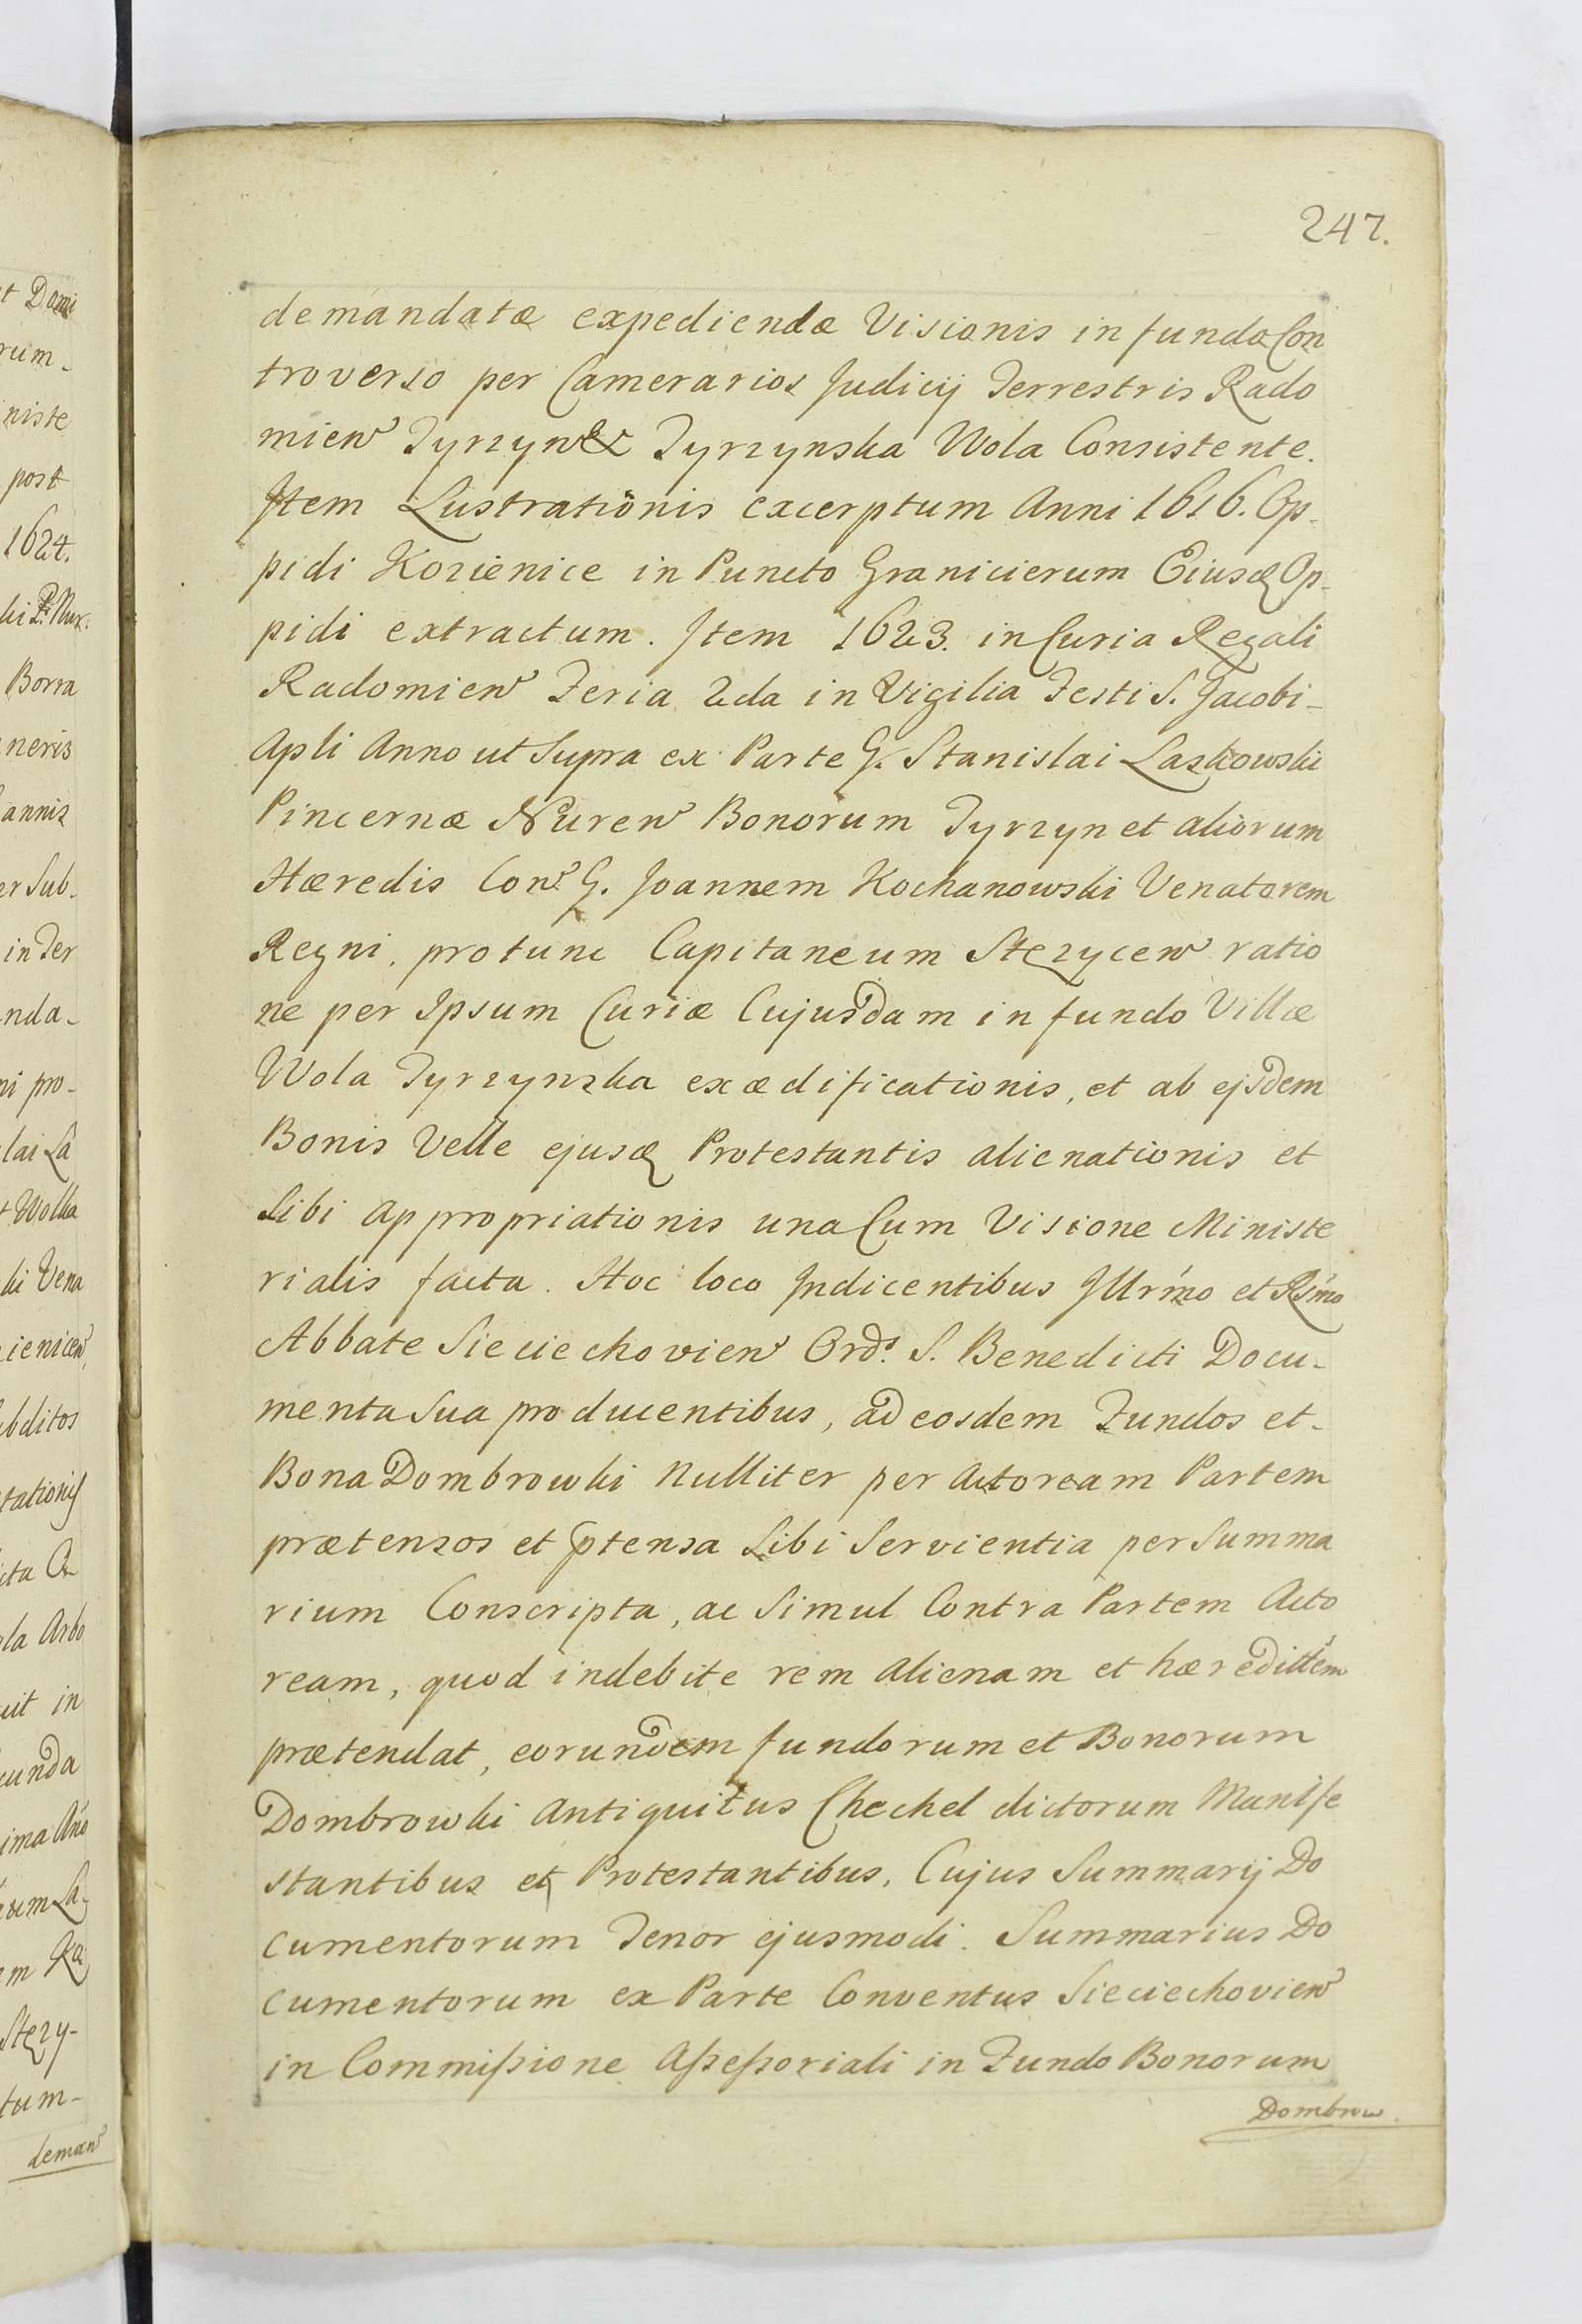 247.
demandatæ expediendæ Visionis in fundo Con
troverso per Camerarios Judicij Terrestris Rado
mien Tyrzyn & Tyrzynska Wola Consistente.
Item Lustrationis excerptum Anni 1616. Op-
pidi Kozienice in Puncto Granicierum Eiusq Op-
pidi extractum. Item 1623. in Curia Regali
Radomien Feria 2da in Vigilia Festi S. Jacobi-
Apli Anno ut Supra ex Parte G. Stanislai Laskowski
Pincernæ Nuren Bonorum Tyrzyn et aliorum
Hæredis Con. G. Joannem Kochanowski Venatorem
Regni, protunc Capitaneum Stezycen ratio
ne per Ipsum Curiæ Cujusdam in fundo Villæ
Wola Tyrzynska exædificationis, et ab ejsdem
Bonis Velle ejusq Protestantis alienationis et
Sibi appropriationis una Cum Visione Ministe
rialis facta. Hoc loco Indicentibus Illrmo et Rsmo
Abbate Sieciechovien Ord. S. Benedicti Docu-
menta Sua producentibus, ad eosdem Fundos et-
Bona Dombrowki Nulliter per Actoream Partem
prætensos et ptensa Sibi Servientia per Summa
rium Conscripta, ac Simul Contra Partem Acto
ream, quod indebite rem alienam et hæredittem
prætendat, eorundem fundorum et Bonorum
Dombrowki Antiquitus Chechel dictorum Manife
stantibus et Protestantibus, Cujus Summarij Do
cumentorum Tenor ejusmodi. Summarius Do
cumentorum ex Parte Conventus Sieciechovien
in Commissione Assessoriali in Fundo Bonorum
Dombrow
t Domi
rum-
niste
post
1624.
ki P. Nur:
Borra
neris
annis
er Sub-
in Ter
nda-
ni pro-
lai La
t Wolka
ki Vena
ienicen
ubditos
tationis
cta
la Arbo
uit in
cunda
ima Ano
um La
em Ka
Stezy-
tum-
deman